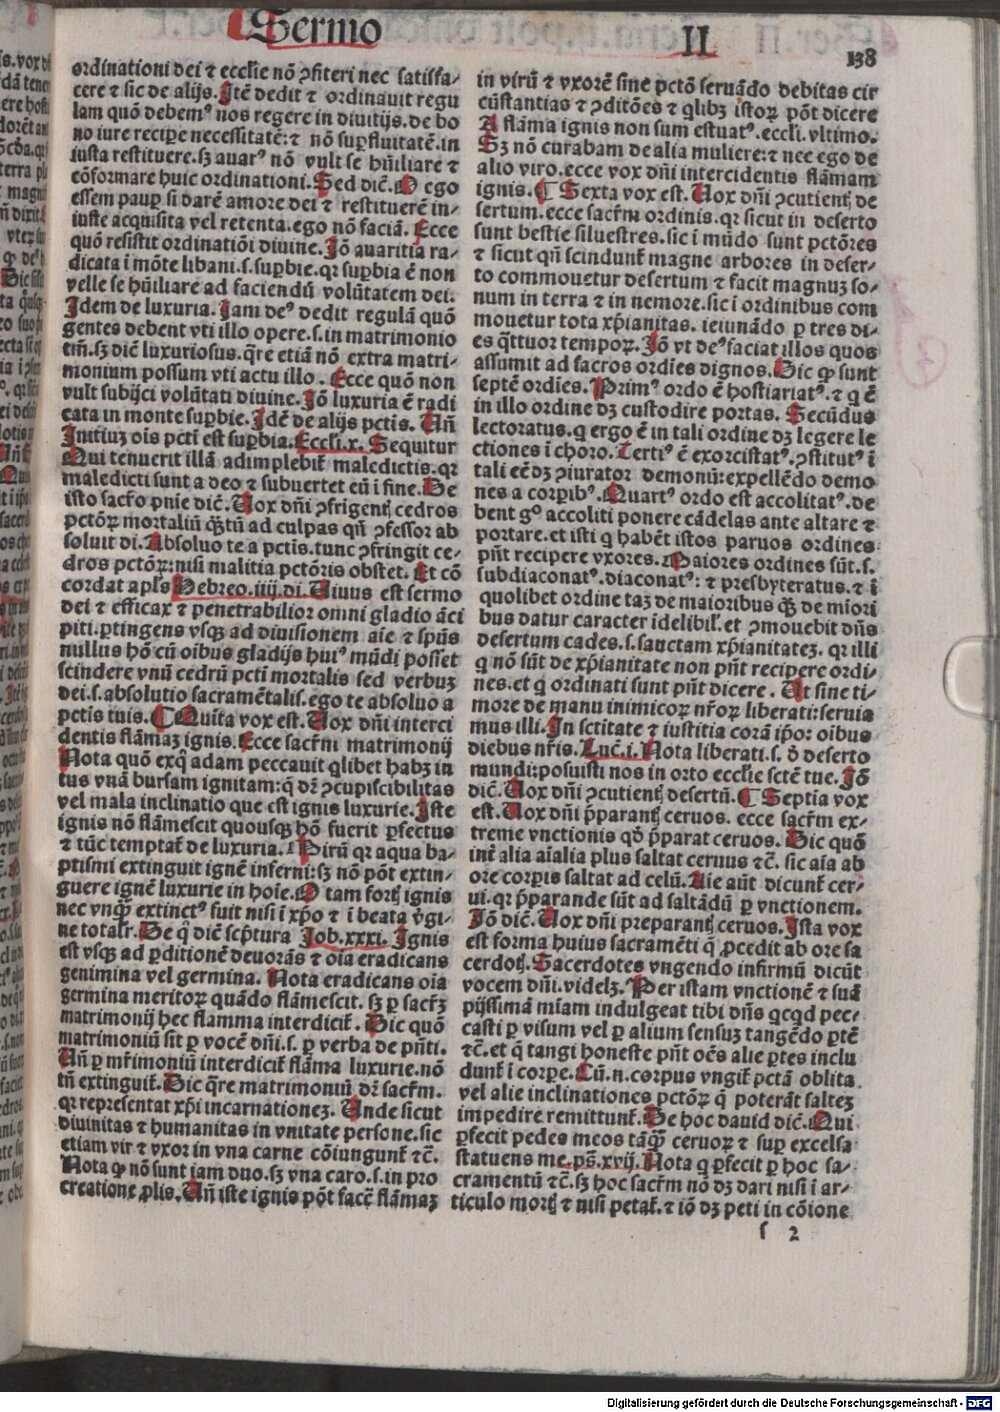 Sermo II 138
ordinationi dei ⁊ ecclie nō ꝯfiteri nec satisfa-
cere ⁊ sic de alijs. Itē dedit ⁊ ordinauit regu
lam quō debemꝰ nos regere in diuitijs. de bo
no iure recipe necessitatē: ⁊ nō suꝑfluitatē. in
iusta restituere. sꝫ auarꝰ nō vult se hūiliare ⁊
cōformare huic ordinationi. Sed dic̄. O ego
essem pauꝑ si darē amore dei ⁊ restituerē in-
iuste acquisita vel retenta. ego nō faciā. Ecce
quō resistit ordinatiōi diuine. Iō auaritia ra-
dicata ī mōte libani. s. suꝑbie. qꝛ suꝑbia ē non
velle se hūiliare ad faciendū volūtatem dei.
Idem de luxuria. Iam deꝰ dedit regulā quō
gentes debent vti illo opere. s. in matrimonio
em̄. sꝫ dic̄ luxuriosus. q̄re etiā nō extra matri-
monium possum vti actu illo. Ecce quō non
vult subijci volūtati diuine. Iō luxuria ē radi
cata in monte suꝑbie. Idē de alijs pctis. Un̄
Initiuꝫ oīs pcti est suꝑbia. Eccli. x. Sequitur
Qui tenuerit illā adimplebit̄ maledictis. qꝛ
maledicti sunt a deo ⁊ subuertet eū i fine. De
isto sacr̄o pnie dic̄. Uox dn̄i ꝯfringentꝭ cedros
pctōꝝ mortaliū qͣꝫtū ad culpas qn̄ ꝯfessor ab
soluit di. Absoluo te a pctis. tunc ꝯfringit ce-
dros pctōꝝ: nisi malitia pctōris obstet. Et cō
cordat apls Hebreo. iiij. di. Uiuus est sermo
dei ⁊ efficax ⁊ penetrabilior omni gladio āci
piti. ꝑtingens vsqꝫ ad diuisionem aīe ⁊ spūs
nullus hō cū oibus gladijs huiꝰ mūdi posset
scindere vnū cedrū pcti mortalis sed verbuꝫ
dei. s. absolutio sacramētalis. ego te absoluo a
pctis tuis. ¶ Quīta vox est. Uox dn̄i interci
dentis flāmaꝫ ignis. Ecce sacr̄m matrimonij
Nota quō exq̄ adam peccauit qͥlibet habꝫ in
tus vnā bursam ignitam: q̄ dꝛ̄ ꝯcupiscibilitas
vel mala inclinatio que est ignis luxurie. Iste
ignis nō flāmescit quousqꝫ hō fuerit ꝑfectus
⁊ tūc temptat̄ de luxuria. Mirū qꝛ aqua ba-
ptismi extinguit ignē inferni: sꝫ nō pōt extin-
guere ignē luxurie in hoīe. O tam fortꝭ ignis
nec vnqͣꝫ extinctꝰ fuit nisi ī xp̄o ⁊ ī beata v̓gi-
ne totalr̄. De q̄ dic̄ scp̄tura Iob. xxxi. Ignis
est vsqꝫ ad ꝑditionē deuorās ⁊ oīa eradicans
genimina vel germina. Nota eradicans oīa
germina meritoꝝ quādo flāmescit. sꝫ ꝑ sacr̄ꝫ
matrimonij hec flamma interdicit̄. Sic quō
matrimoniū sit ꝑ vocē dn̄i. s. ꝑ verba de pn̄ti.
Un̄ ꝑ mr̄imoniū interdicit̄ flāma luxurie. nō
tn̄ extinguit̄. Sic q̄re matrimoniū dꝛ̄ sacr̄m.
qꝛ representat xp̄i incarnationeꝫ. Unde sicut
diuinitas ⁊ humanitas in vnitate persone. sic
etiam vir ⁊ vxor in vna carne cōiungunt̄ ⁊c̄.
Nota ꝙ nō sunt iam duo. sꝫ vna caro. s. in pro
creatione ꝓlis. Un̄ iste ignis pōt facē flāmaꝫ
in virū ⁊ vxorē sine pctō seruādo debitas cir
cūstantias ⁊ ꝯditōes ⁊ qͥlibꝫ istoꝝ pōt dicere
A flāma ignis non sum estuatꝰ. eccli. vltimo.
Sꝫ nō curabam de alia muliere: ⁊ nec ego de
alio viro. ecce vox dn̄i intercidentis flāmam
ignis. ¶ Sexta vox est. Uox dn̄i ꝯcutientꝭ de
sertum. ecce sacr̄m ordinis. qꝛ sicut in deserto
sunt bestie siluestres. sic ī mūdo sunt pctōres
⁊ sicut qn̄ scindunt̄ magne arbores in deser-
to commouetur desertum ⁊ facit magnuꝫ so-
num in terra ⁊ in nemore. sic ī ordinibus com
mouetur tota xp̄ianitas. ieiunādo ꝑ tres di-
es qͣttuor tempoꝝ. Iō vt deꝰ faciat illos quos
assumit ad sacros ordīes dignos. Sic ꝙ sunt
septē ordīes. Primꝰ ordo ē hostiariatꝰ. ⁊ q ē
in illo ordine dꝫ custodire portas. Secūdus
lectoratus. q ergo ē in tali ordine dꝫ legere le
ctiones ī choro. Tertiꝰ ē exorcistatꝰ. ꝯstitutꝰ ī
tali eē dꝫ ꝯiurator demonū: expellēdo demo
nes a corꝑibꝰ. Quartꝰ ordo est accolitatꝰ. de
bent gͦ accoliti ponere cādelas ante altare ⁊
portare. et isti q habēt istos paruos ordines
pn̄t recipere vxores. Maiores ordines sūt. s.
subdiaconatꝰ. diaconatꝰ: ⁊ presbyteratus. ⁊ ī
quolibet ordine taꝫ de maioribus qͣꝫ de miori
bus datur caracter īdelibil̓. et ꝯmouebit dn̄s
desertum cades. s. sanctam xp̄ianitateꝫ. qꝛ illi
q nō sūt de xp̄ianitate non pn̄t recipere ordi-
nes. et q ordinati sunt pn̄t dicere. At sine ti-
more de manu inimicoꝝ nr̄oꝝ liberati: seruia
mus illi. In sctitate ⁊ iustitia corā ip̄o: oibus
diebus nr̄is. Luc̄. i. Nota liberati. s. d̓ deserto
mundi: posuisti nos in orto ecclie scte tue. Iō
dic̄. Uox dn̄i ꝯcutientꝭ desertū. ¶ Septia vox
est. Uox dn̄i p̄parantꝭ ceruos. ecce sacr̄m ex-
treme vnctionis qd̓ p̄parat ceruos. Sic quō
int̄ alia aīalia plus saltat ceruus ⁊c̄. sic aīa ab
ore corꝑis saltat ad celū. Aīe aūt dicunt̄ cer-
ui. qꝛ p̄parande sūt ad saltādū ꝑ vnctionem.
Iō dic̄. Uox dn̄i preparantꝭ ceruos. Ista vox
est forma huius sacramēti q̄ ꝓcedit ab ore sa
cerdotꝭ. Sacerdotes vngendo infirmū dicūt
vocem dn̄i. videlꝫ. Per istam vnctionē ⁊ suā
pijssimā mīam indulgeat tibi dn̄s qͥcqͥd pecc̄
casti ꝑ visum vel ꝑ alium sensuꝫ tangēdo ꝑtē
⁊c̄. et q̄ tangi honeste pn̄t oēs alie ꝑtes inclu
dunt̄ ī corꝑe. Cū. n. corpus vngit̄ pctā oblita
vel alie inclinationes pctōꝝ q̄ poterāt salteꝫ
impedire remittunt̄. De hoc dauid dic̄. Qui
ꝑfecit pedes meos tāqͣꝫ ceruoꝝ ⁊ suꝑ excelsa
statuens me. ps̄. xvij. Nota q ꝑfecit ꝑ hoc sa-
cramentū ⁊c̄. sꝫ hoc sacr̄m nō dꝫ dari nisi ī ar-
ticulo mortꝭ ⁊ nisi petat̄. ⁊ iō dꝫ peti in cōione
s 2
Digitalisierung gefördert durch die Deutsche Forschungsgemeinschaft - DFG